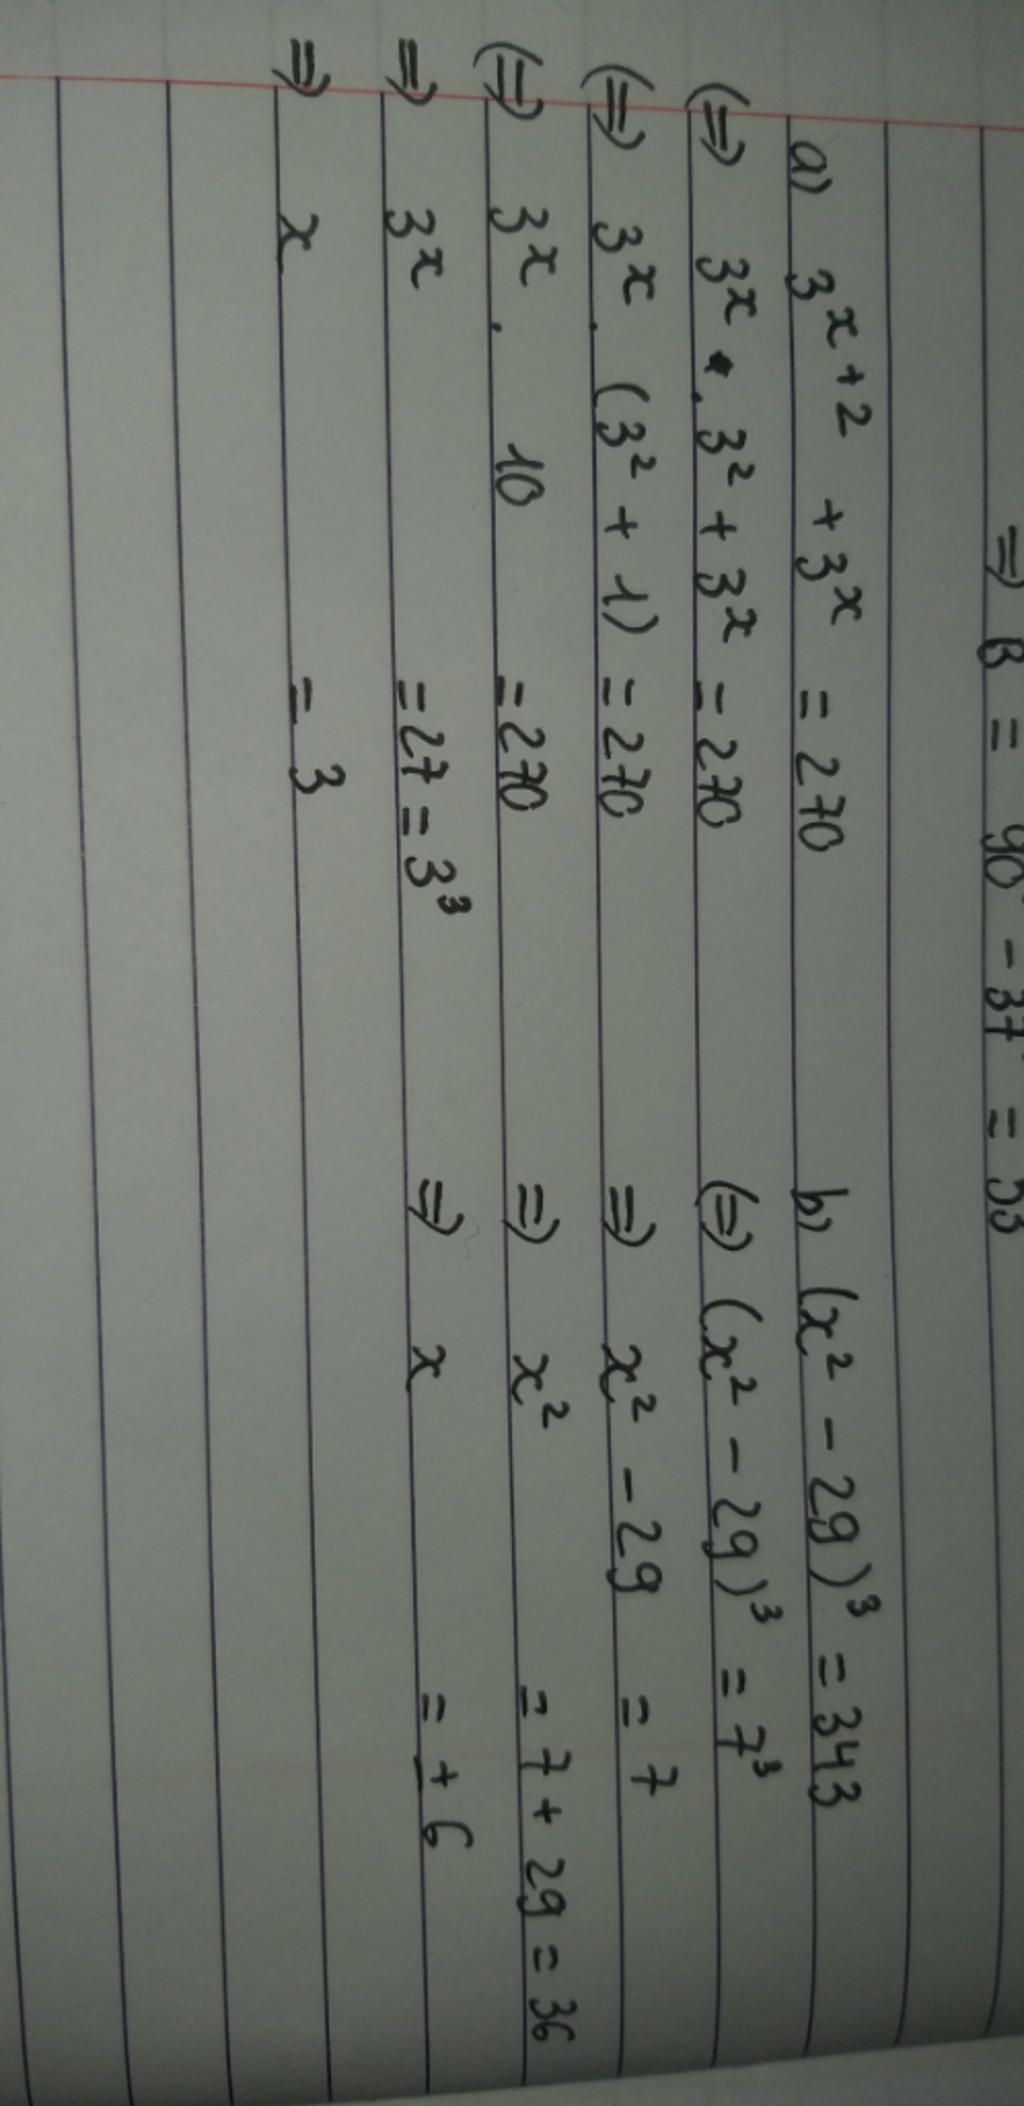 => B = 90 - 37 = 53
a) 3^x+2 + 3^x = 270
(=) 3^x . 3² + 3^x = 270
(=) 3^x . (3² + 1) = 270
(=) 3^x . 10 = 270
=> 3^x = 27 = 3³
=> x = 3
b) (x² - 29)³ = 343
(=) (x² - 29)³ = 7³
=> x² - 29 = 7
=> x² = 7 + 29 = 36
=> x = ± 6